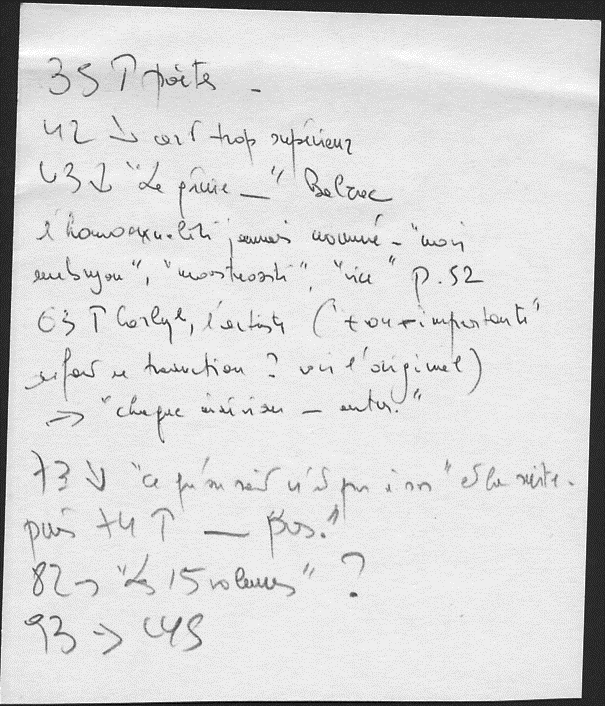 35 ↑ poètes -
42 ↘ art trop supérieur
43 ↓ "Le génie — " Balzac
l'homosexualité jamais nommé - "mon
embryon", "monstruosité", "vice" p. 52
63 ↑ Carlyle, l'artiste ("tout-importante"
traduction ? voir l'original)
⇒ "chaque division — autres."
73 ↓ "ce qu'on sait n'est pas à soi" et la suite.
puis 74 ↑ — pas."
82 → "Les 15 volumes" ?
93 → 445